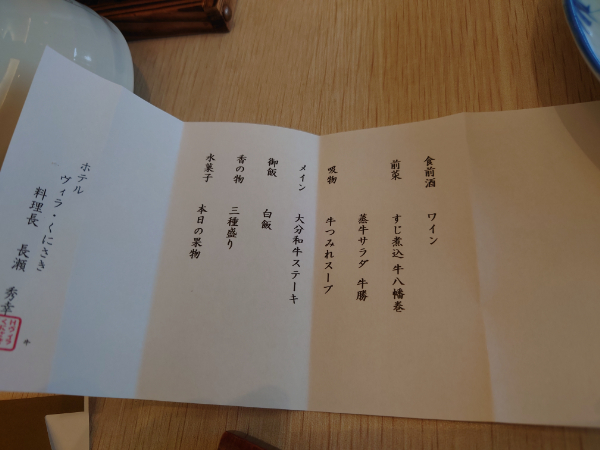 食前酒 ワイン
前菜 すじ煮込 牛八幡巻
蒸牛サラダ 牛勝
吸物 牛つみれスープ
メイン 大分和牛ステーキ
御飯 白飯
香の物 三種盛り
水菓子 本日の果物
ホテル
ヴィラ・くにさき
料理長 長瀬 秀幸